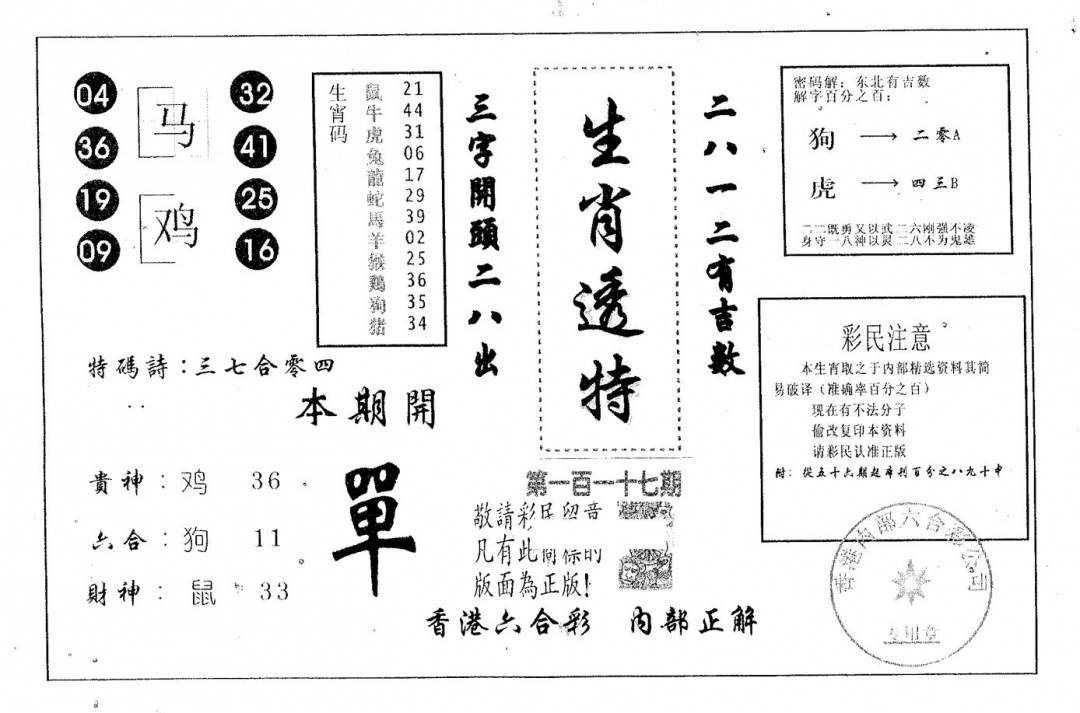 04
36
19
09
马
鸡
32
41
25
16
生宵码
鼠 21
牛 44
虎 31
兔 06
龍 17
蛇 29
馬 39
羊 02
猴 25
鷄 36
狗 35
猪 34
三字開頭二八出
生肖透特
二八一二有吉数
密码解：东北有吉数
解字百分之百：
狗 → 二零A
虎 → 四三B
二二既勇又以武二六刚强不凌
身守一八神以灵二八不为鬼雄
彩民注意
本生肖取之于内部精选资料其简
易破译（准确率百分之百）
现在有不法分子
偷改复印本资料
请彩民认准正版
附：從五十六期起本刊百分之八九十中
特碼詩：三七合零四
本期開
單
貴神：鸡 36
六合：狗 11
財神：鼠 33
第一百一十七期
敬請彩民留音
凡有此防标的
版面為正版！
香港六合彩 内部正解
香港内部六合彩公司
专用章